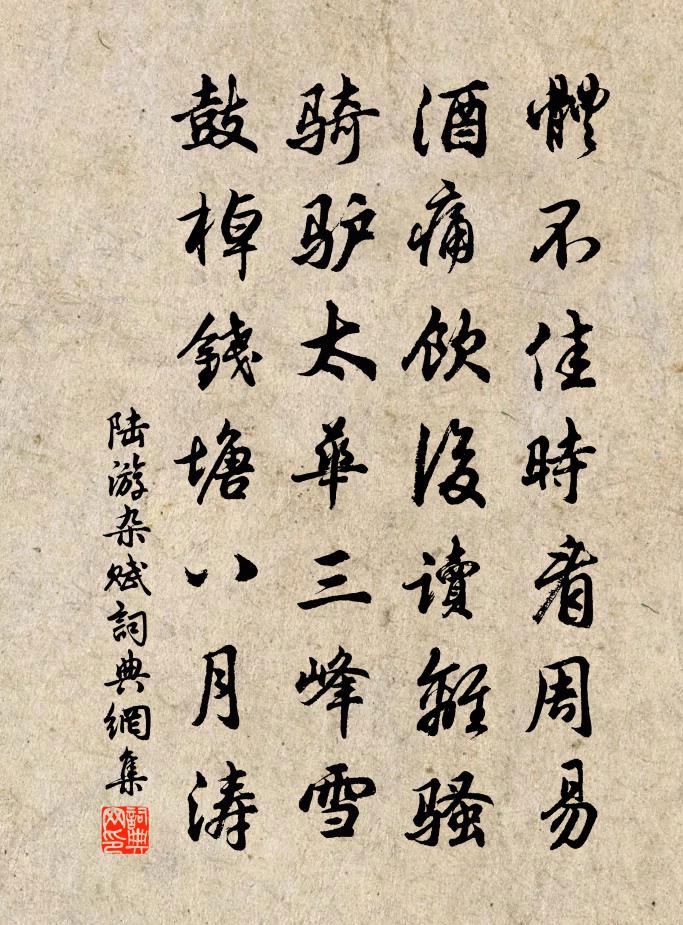 體不佳時看周易
酒痛飲後讀離騷
騎驴太華三峰雪
鼓棹錢塘八月涛
陆游杂賦詞典網集
詞典
网印